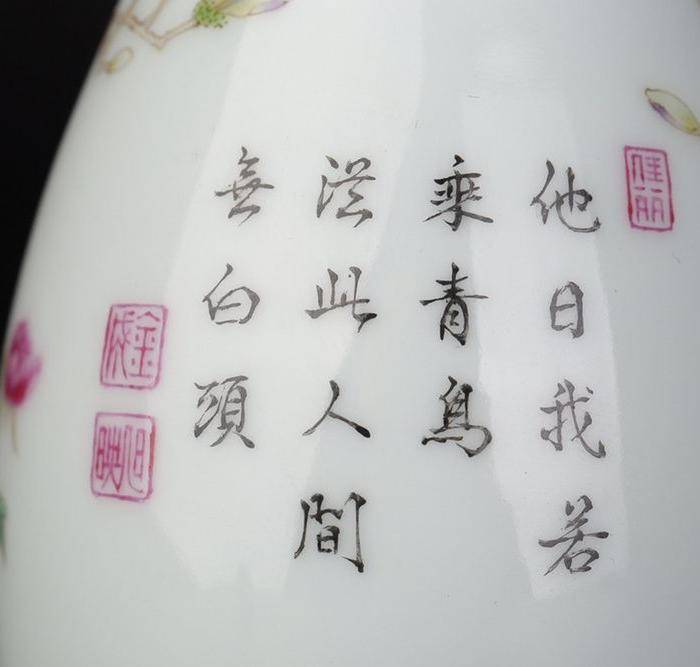 佳丽
他日我若
乘青鳥
從此人間
無白頭
金成
旭映